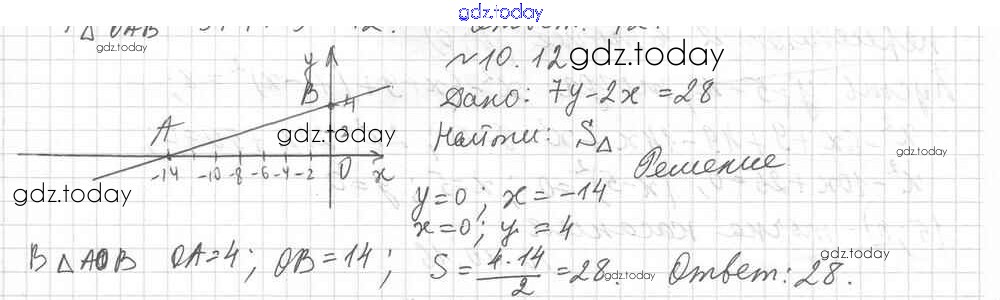 gdz.today
△OAB
gdz.today
№10.12 gdz.today
y
B 4
Дано: 7y-2x=28
A
gdz.today
Найти: S△
gdz.today
Решение
-14 -10 -8 -6 -4 -2 0 x
gdz.today
y=0; x=-14
x=0; y=4
В △AOB OA=4; OB=14; S=4·14/2=28. gdz.today Ответ: 28.